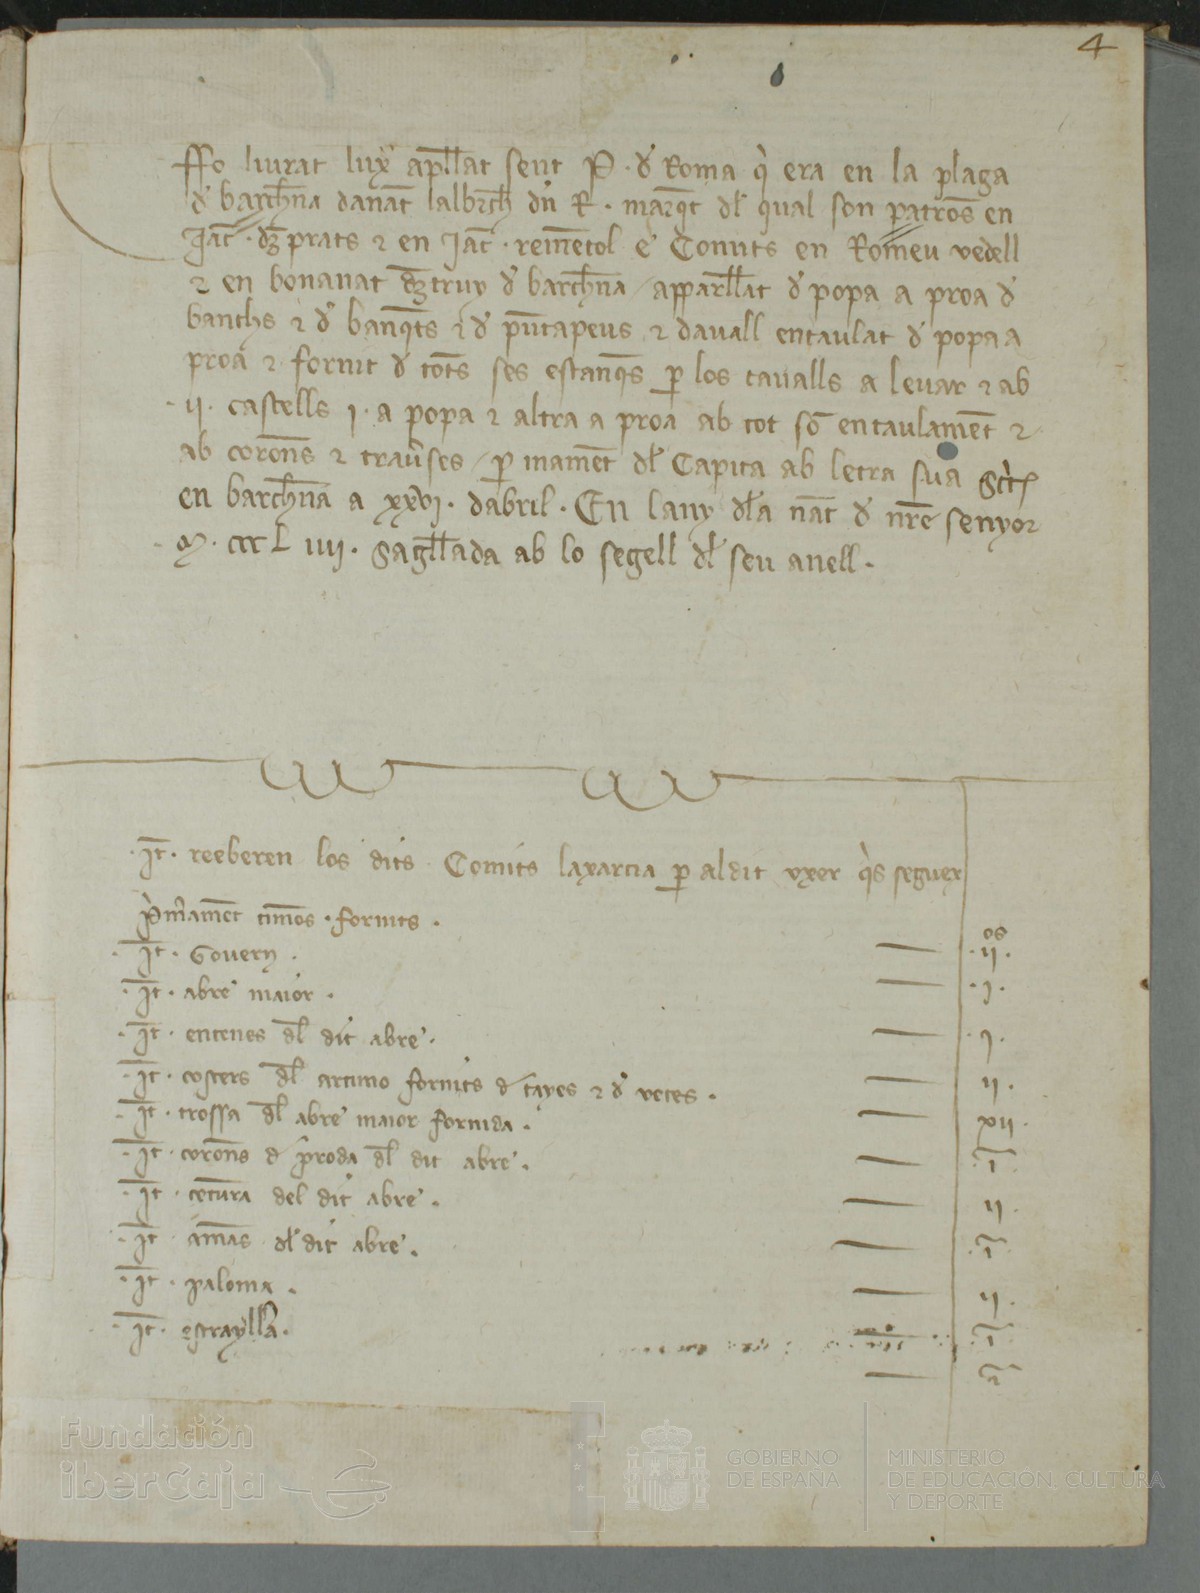 4
ffo liurat lux̄ ap̄llat sent P · d' Roma q̀ era en la plaga
d' barch̄na danāt lalbr̄ch dn̄ R · marq̄t dl̄ qual son patrōs en
Jac̄ · dȝ prats ⁊ en Jac̄ · remētol e Comits en Romeu vedell
⁊ en bonanat dȝtruy d' barch̄na / apparll̄at d' popa a proa d'
banchs ⁊ d' banq̄ts ⁊ d' pūtapeus ⁊ dauall entaulat d' popa a
proa ⁊ fornit d' tōts ses estanq̄s p̱ los caualls a leuar ⁊ ab
· ij · castells j · a popa ⁊ altra a proa ab tot sō entaulamēt ⁊
ab corōns ⁊ trau̓ses / p̱ manamēt dl̄ Capita ab letra sua
en barch̄na a xxvj · dabril · En lany dl̄a nāt d' nr̄e senyor
· M · ccc L iiij · sagll̄ada ab lo segell dl̄ seu anell ·
· Jt̄ · reeberen los dits Comits laxarcia p̱ al dit vxer q̀s seguex
P̓m̓amēt timōs · fornits · — · ij ·os
· Jt̄ · Gouern · — · j ·
· Jt̄ · abre maior · — · j ·
· Jt̄ · entenes dl̄ dit abre · — ij ·
· Jt̄ · costers dl̄ artimo fornits d' tayes ⁊ d' vetes · — xij ·
· Jt̄ · trossa dl̄ abre maior fornida · — ·ī·
· Jt̄ · corōns d' proda dl̄ dit abre · — ij ·
· Jt̄ · del dit abre · — ·ī·
· Jt̄ · dl̄ dit abre · — ij ·
· Jt̄ · paloma · — ·ī·
· Jt̄ · straylla · — ī
Fundación
iberCaja
GOBIERNO
DE ESPAÑA
MINISTERIO
DE EDUCACIÓN, CULTURA
Y DEPORTE